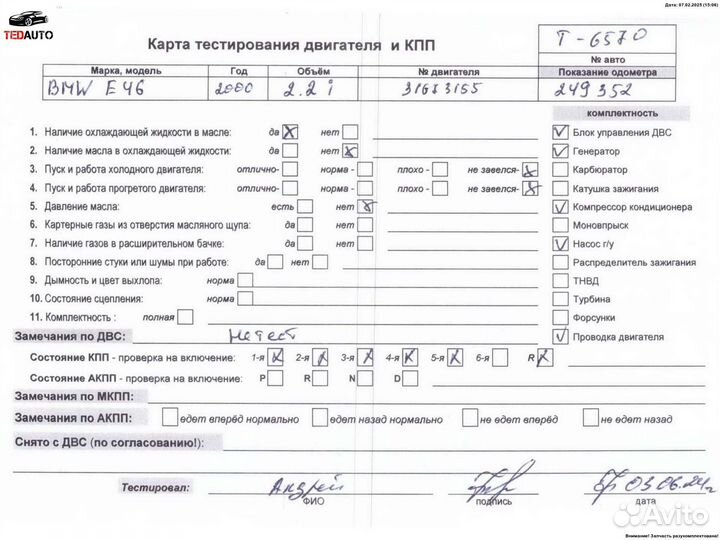 Дата: 07.02.2025 (15:06)
TEDAUTO
Карта тестирования двигателя и КПП
T-6570
№ авто
Марка, модель Год Объём № двигателя Показание одометра
BMW E46 2000 2.2 i 31683155 249 352
комплектность
1. Наличие охлаждающей жидкости в масле: да нет Блок управления ДВС
2. Наличие масла в охлаждающей жидкости: да нет Генератор
3. Пуск и работа холодного двигателя: отлично- норма - плохо - не завелся- Карбюратор
4. Пуск и работа прогретого двигателя: отлично- норма - плохо - не завелся- Катушка зажигания
5. Давление масла: есть нет Компрессор кондиционера
6. Картерные газы из отверстия масляного щупа: да нет Моновпрыск
7. Наличие газов в расширительном бачке: да нет Насос г/у
8. Посторонние стуки или шумы при работе: да нет Распределитель зажигания
9. Дымность и цвет выхлопа: норма ТНВД
10. Состояние сцепления: норма Турбина
11. Комплектность : полная Форсунки
Замечания по ДВС: не тест Проводка двигателя
Состояние КПП - проверка на включение: 1-я 2-я 3-я 4-я 5-я 6-я R
Состояние АКПП - проверка на включение: P R N D
Замечания по МКПП:
Замечания по АКПП: едет вперёд нормально едет назад нормально не едет вперёд не едет назад
Снято с ДВС (по согласованию!):
Тестировал: Андрей 03.06.24г
ФИО подпись дата
Avito
Внимание! Запчасть разукомплектована!